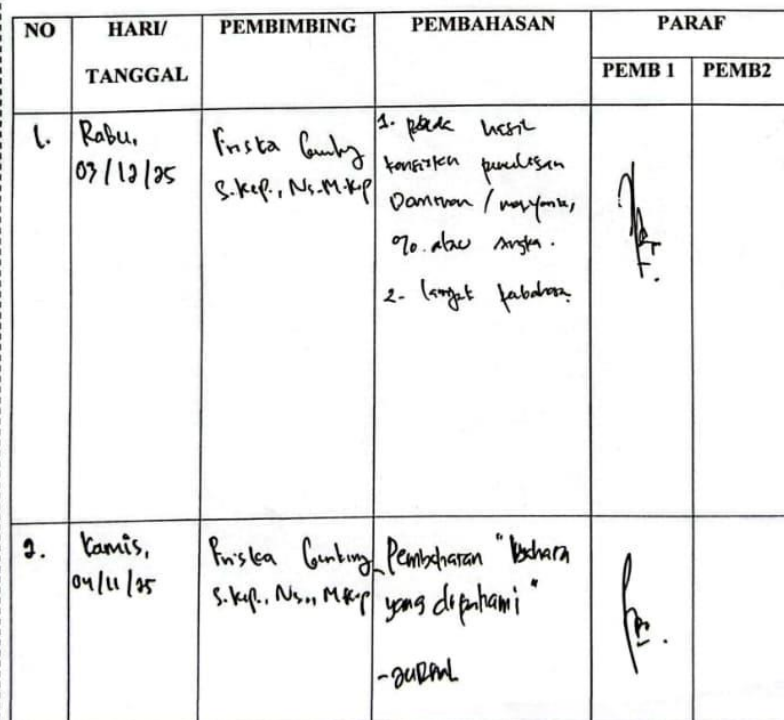 NO HARI/ TANGGAL PEMBIMBING PEMBAHASAN PARAF
PEMB 1 PEMB2
1. Rabu,
03/12/25
Friska
S.Kep., Ns. M.Kep
1. pada hasil
konsisten penulisan
Dominan / mayoritas,
% atau angka.
2. lanjut
2. Kamis,
04/11/25
Friska Ginting
S.Kep., Ns., M.Kep
yang dipahami"
- JURNAL